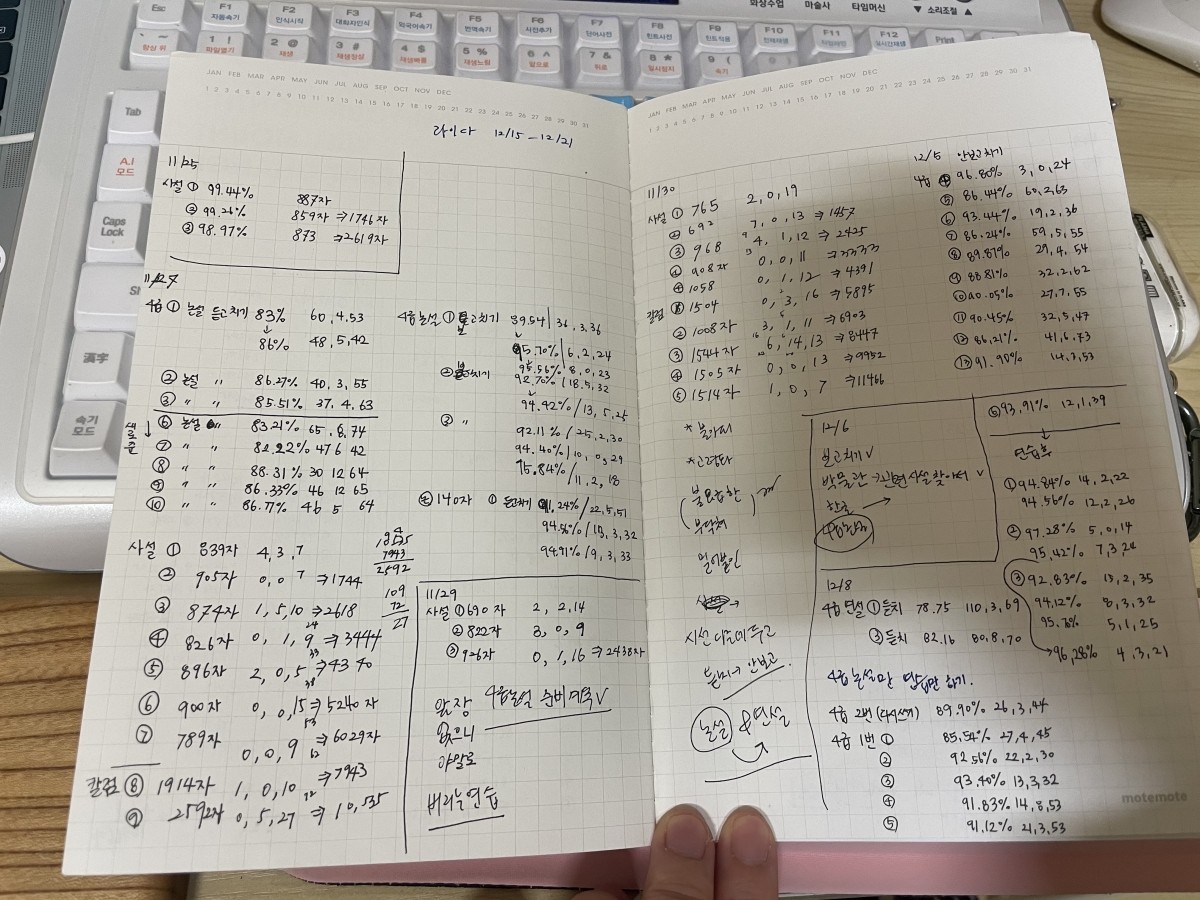 화상수업 마술사 타임머신
▼ 소리조절 ▲
Esc
F1 자동속기
F2 인식시작
F3 대화자인식
F4 외국어속기
F5 번역속기
F6 사전추가
F7 단어사전
F8 힌트사전
F9
F10
F11
F12
Print
항상 위
1 ! 파일열기
2 @ 재생
3 # 재생정상
4 $ 재생빠름
5 % 재생느림
6 ^ 앞으로
7 & 뒤로
8 * 일시정지
9 ( 속기
Tab
A.I 모드
Caps Lock
漢字
속기 모드
JAN FEB MAR APR MAY JUN JUL AUG SEP OCT NOV DEC
1 2 3 4 5 6 7 8 9 10 11 12 13 14 15 16 17 18 19 20 21 22 23 24 25 26 27 28 29 30 31
12/15 - 12/21
11/25
사설 ① 99.44% 887자
② 99.26% 859자 ⇒1746자
③ 98.97% 873 ⇒2619자
11/27
4급 ① 논설 듣고치기 83% 60,4,53
↓
86% 48,5,42
② 논설 〃 86.27% 40,3,55
③ 〃 〃 85.51% 37,4,63
⑥ 논설 83.21% 65,6,74
⑦ 〃 〃 82.22% 47 6 42
⑧ 〃 〃 88.31% 30 12 64
⑨ 〃 〃 86.33% 46 12 65
⑩ 〃 〃 86.77% 46 5 64
사설 ① 839자 4,3,7
② 905자 0,0,7 ⇒1744
③ 874자 1,5,10 ⇒2618
④ 826자 0,1,9 ⇒3444
⑤ 896자 2,0,5 ⇒4340
⑥ 900자 0,0,15 ⇒5240자
⑦ 789자 0,0,9 ⇒6029자
칼럼 ⑧ 1914자 1,0,10 ⇒7943
⑨ 2592자 0,5,27 ⇒10,535
7943
2592
109
72
27
4급논설 ① 보고치기 89.54 / 36,3,36
95.70% / 6,2,24
95.56% / 8,0,23
92.70% / 18,5,32
↓
94.42% / 13,5,25
③ 〃 92.11% / 25,2,30
94.40% / 10,0,29
95.84% / 11,2,18
140자 ① 듣고치기 91,24% / 22,5,51
94.56% / 15,3,32
94.91% / 9,3,33
11/29
사설 ① 690자 2,2,14
② 822자 3,0,9
③ 926자 0,1,16 ⇒2438자
4급논설 준비 계속 V
앞장
없으니
야말로
버리는연습
11/30
사설 ① 765 2,0,19
② 692 7,0,13 ⇒1457
③ 968 4,1,12 ⇒2425
④ 908자 0,0,11 ⇒3333
④ 1058 0,1,12 ⇒4391
칼럼 ⑧ 1504 0,3,16 ⇒5895
② 1008자 3,1,11 ⇒6903
③ 1544자 6,14,13 ⇒8447
④ 1505자 0,0,13 ⇒9952
⑤ 1514자 1,0,7 ⇒11466
*고렇다
불요급한
부닥쳐
얼어붙인
시선 다음에 두고
논설 &연설
12/5 안보고치기
4급 ④ 96.80% 3,0,24
⑤ 86.44% 60,2,63
⑥ 93.44% 19,2,36
⑦ 86.24% 59,5,55
⑧ 89.87% 29,4,54
⑨ 88.81% 32,2,62
⑩ 90.05% 27,7,55
⑪ 90.45% 32,5,47
⑫ 86,21% 41,6,73
⑬ 91.90% 14,3,53
12/6
보고치기 V
박물관→관련 사설 찾아서 V
한글
⑥ 93,91% 12,1,39
↓
연습후
① 94.84% 14,2,22
94.56% 12,2,26
② 97.28% 5,0,14
95,42% 7,3,24
③ 92.83% 13,2,35
94,12% 8,3,32
95.76% 5,1,25
96,28% 4,3,21
12/8
4급 연설 ① 듣치 78.75 110,3,69
③ 듣치 82.16 80,8,70
4급 논설만 연습만 하기.
4급 2번 (다시쓰기) 89.90% 26,3,44
4급 1번 ① 85.54% 27,4,45
② 92.56% 22,2,30
③ 93.40% 13,3,32
④ 91.83% 14,8,53
⑤ 91.12% 21,3,53
motemote